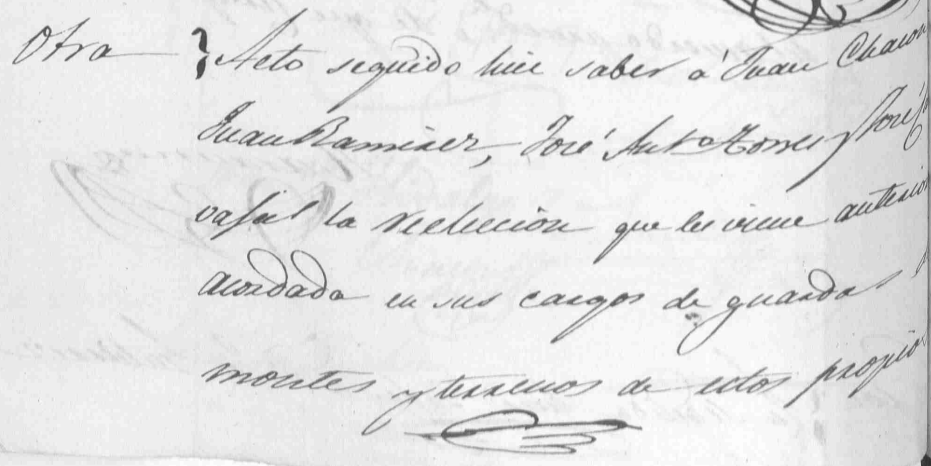 Otra } Acto seguido hice saber á Juan Chacon
Juan Ramirez, José Ant.º Torres y José
la reeleccion que les viene anterior
acordada en sus cargos de guardas
montes y terrenos de estos propios